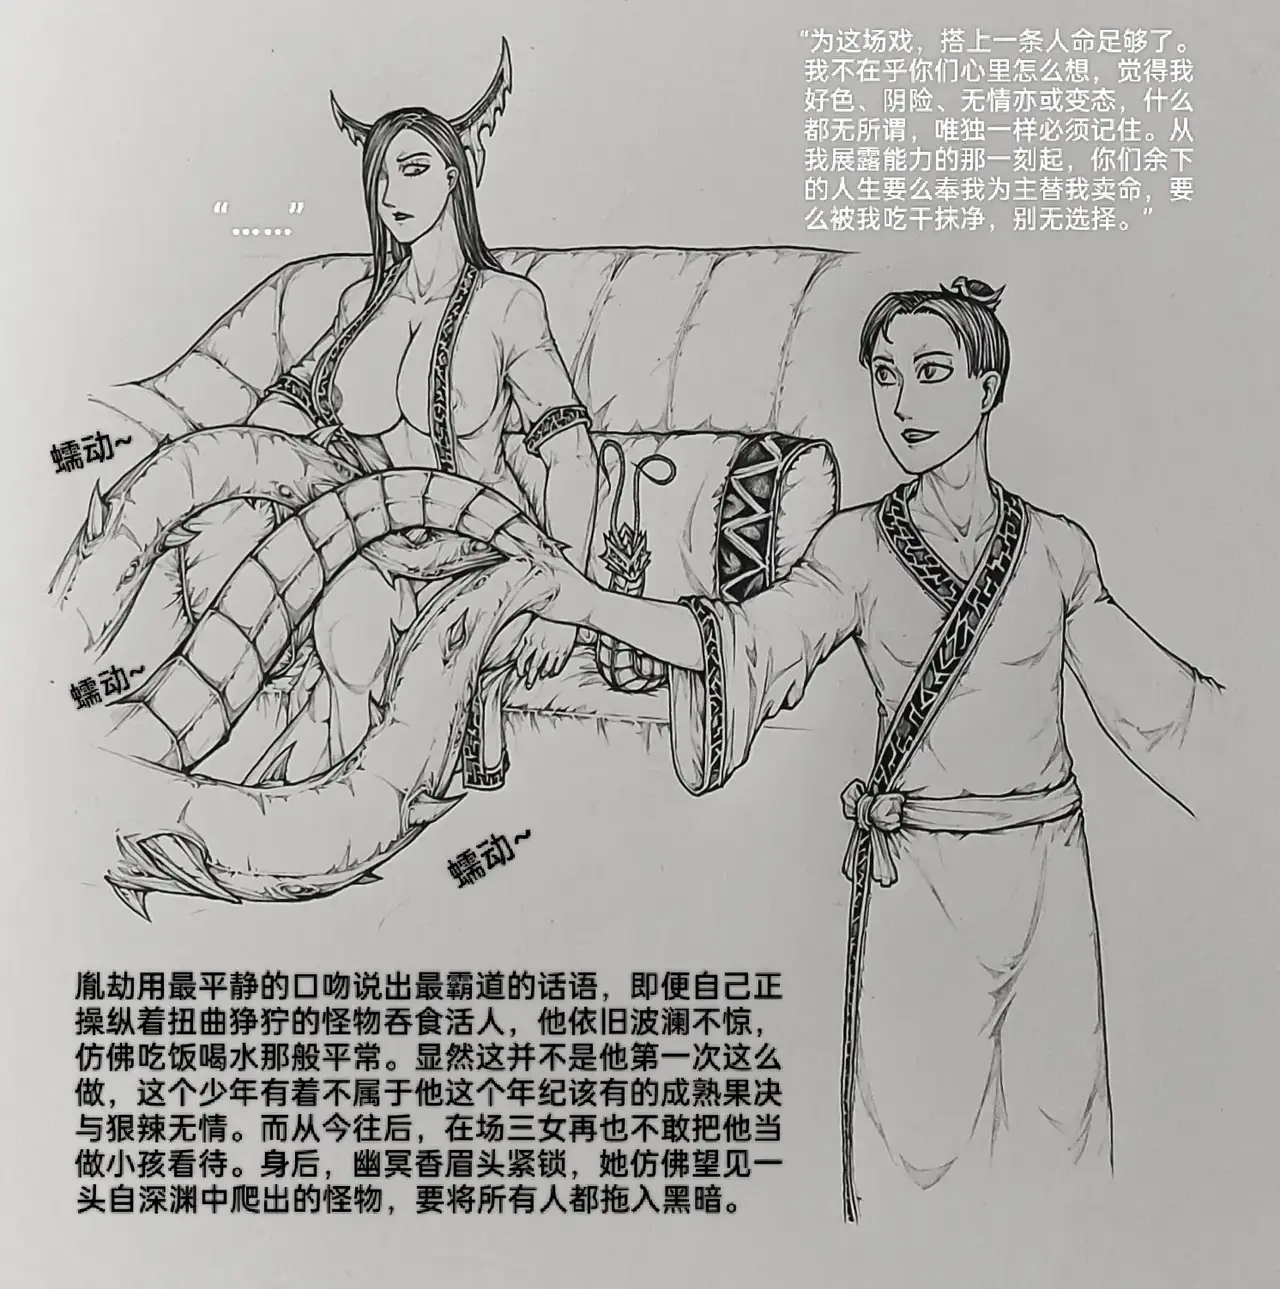 “为这场戏，搭上一条人命足够了。
我不在乎你们心里怎么想，觉得我
好色、阴险、无情亦或变态，什么
都无所谓，唯独一样必须记住。从
我展露能力的那一刻起，你们余下
的人生要么奉我为主替我卖命，要
么被我吃干抹净，别无选择。”
“……”
蠕动~
蠕动~
蠕动~
胤劫用最平静的口吻说出最霸道的话语，即便自己正
操纵着扭曲狰狞的怪物吞食活人，他依旧波澜不惊，
仿佛吃饭喝水那般平常。显然这并不是他第一次这么
做，这个少年有着不属于他这个年纪该有的成熟果决
与狠辣无情。而从今往后，在场三女再也不敢把他当
做小孩看待。身后，幽冥香眉头紧锁，她仿佛望见一
头自深渊中爬出的怪物，要将所有人都拖入黑暗。